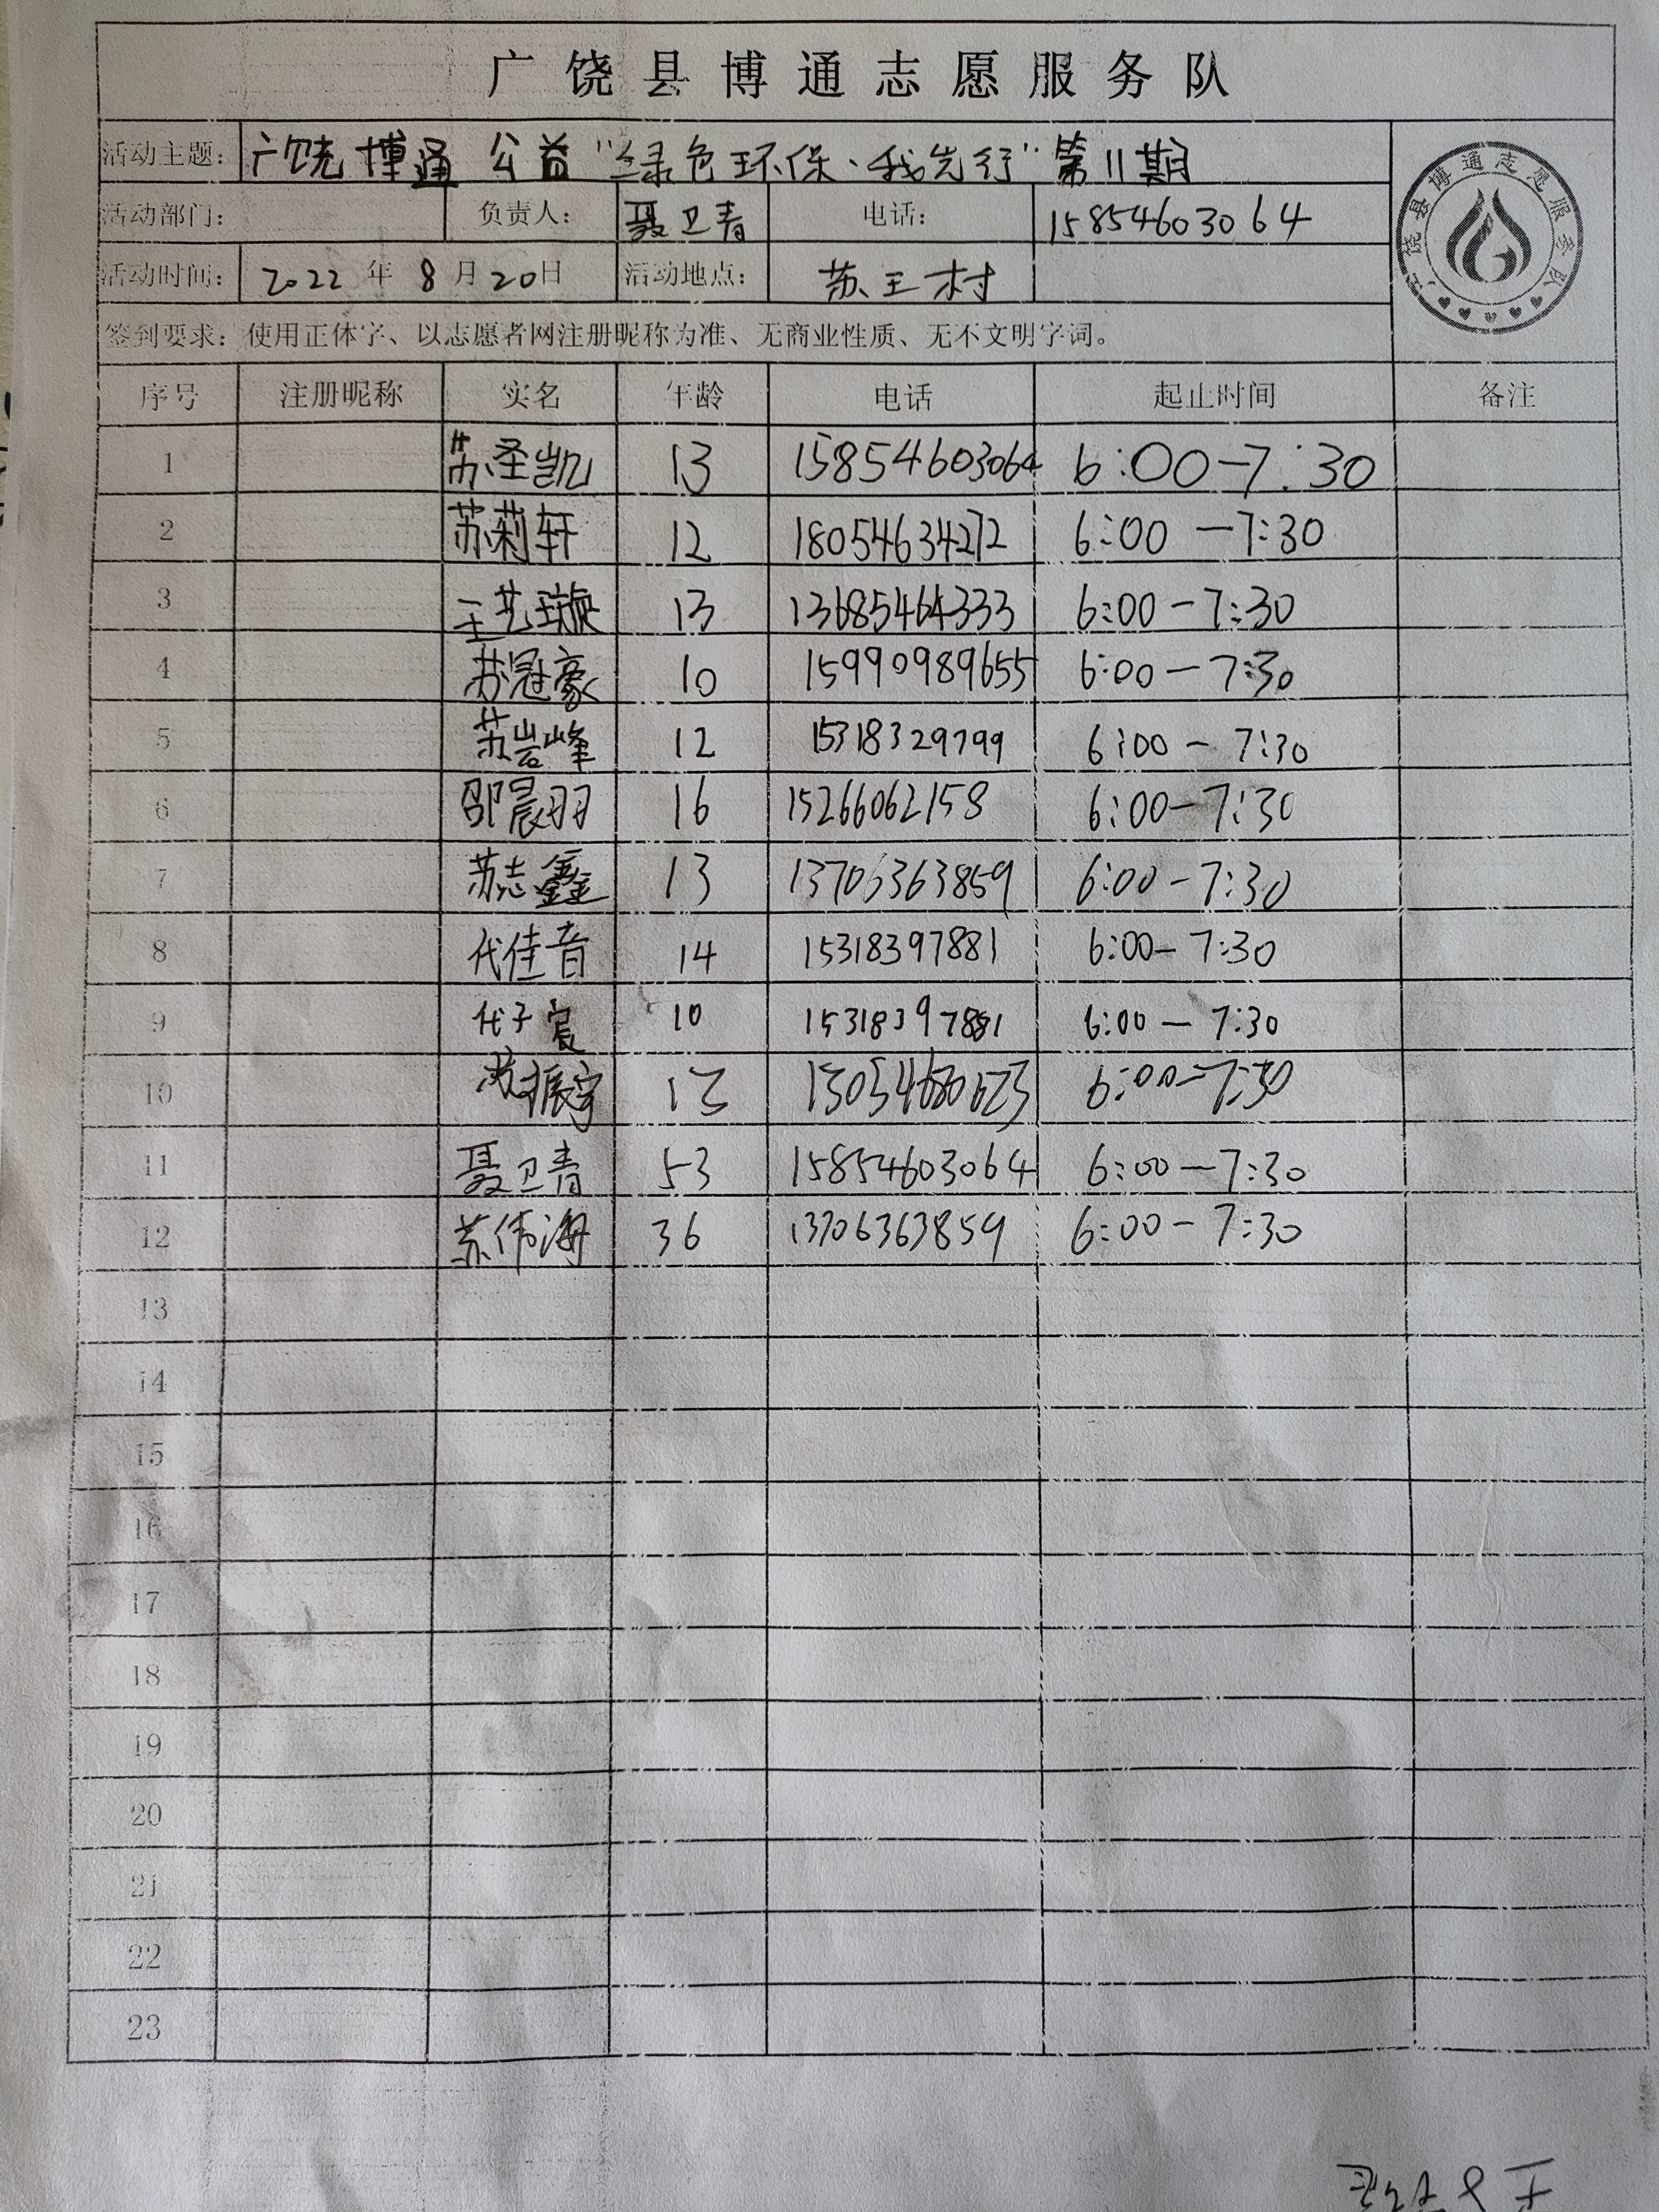 广饶县博通志愿服务队
活动主题: 广饶博通 公益"绿色环保·我先行"第11期
活动部门: 负责人: 聂卫青 电话: 15854603064
活动时间: 2022年8月20日 活动地点: 苏王村
签到要求: 使用正体字、以志愿者网注册昵称为准、无商业性质、无不文明字词。
广饶县博通志愿服务队
序号 注册昵称 实名 年龄 电话 起止时间 备注
1 苏圣凯 13 15854603064 6:00-7:30
2 苏莉轩 12 18054634272 6:00-7:30
3 王艺璇 13 13685464333 6:00-7:30
4 苏冠豪 10 15990989655 6:00-7:30
5 苏岩峰 12 15318329799 6:00-7:30
6 邵晨羽 16 15266062158 6:00-7:30
7 苏志鑫 13 13706363859 6:00-7:30
8 代佳音 14 15318397881 6:00-7:30
9 代子宸 10 15318397881 6:00-7:30
10 苏振宇 13 6:00-7:30
11 聂卫青 53 15854603064 6:00-7:30
12 苏伟海 36 13706363859 6:00-7:30
13
14
15
16
17
18
19
20
21
22
23